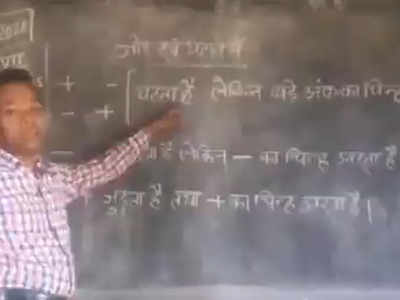 जोड़ एवं घटाव में
+ - घटता है लेकिन बड़े अंक का चिन्ह
- +
- है लेकिन - का चिन्ह लगता है
+ जुड़ता है तथा + का चिन्ह लगता है।